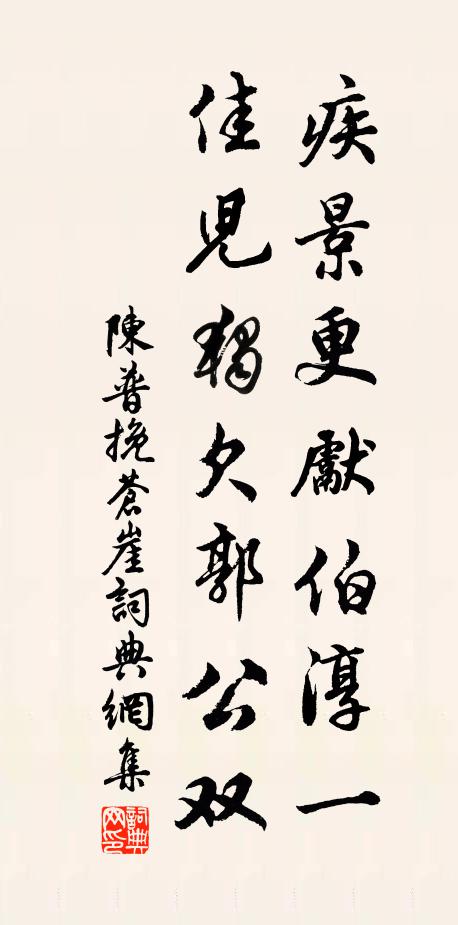 疾景更獻伯淳一
佳児獨欠郭公双
陳普挽蒼崖詞典網集
詞典網印